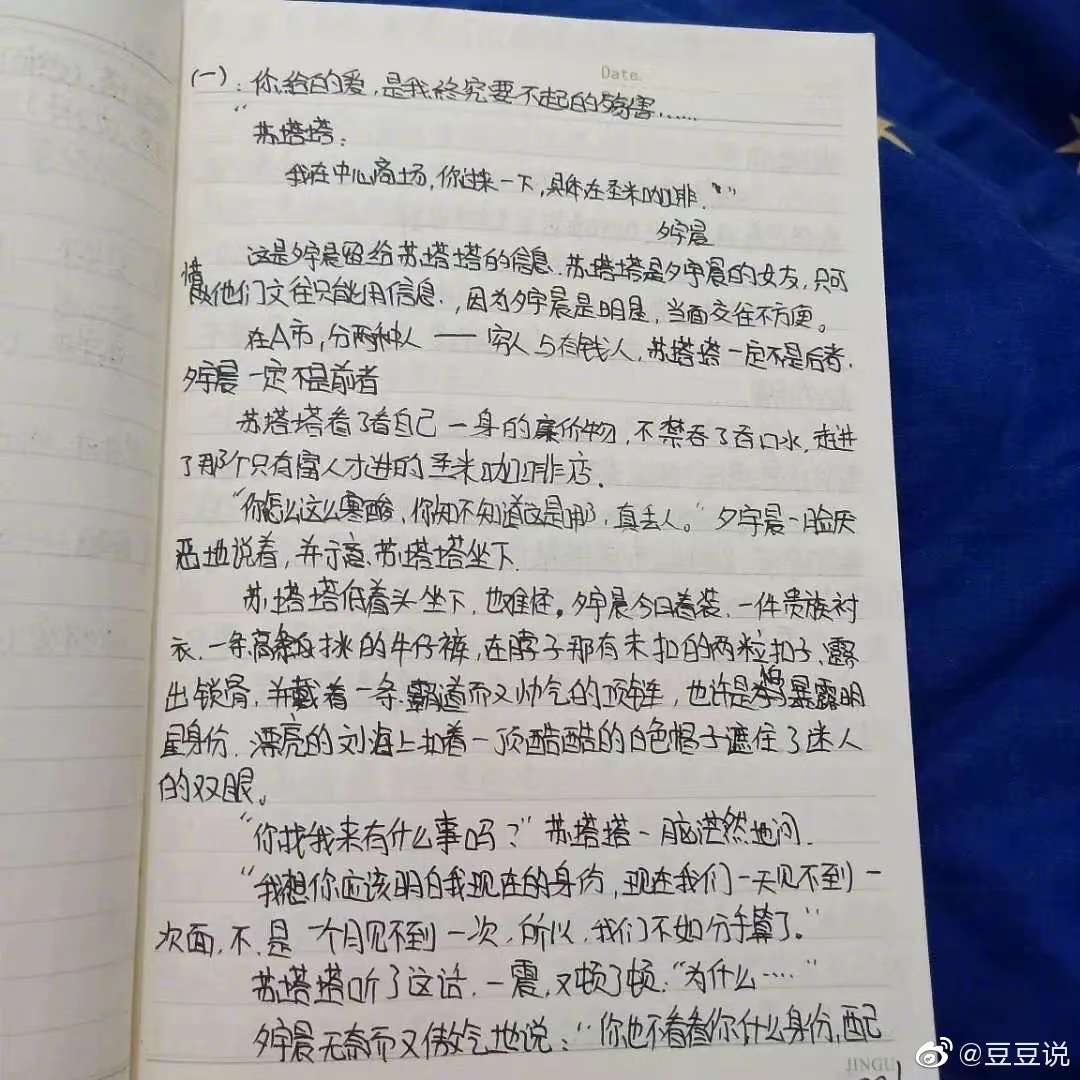 Date.
(一):你给的爱,是我终究要不起的殇害……
“苏塔塔:
我在中心商场,你过来一下,具体在圣米咖啡.”
夕宇晨
这是夕宇晨留给苏塔塔的信息.苏塔塔是夕宇晨的女友,只可
惜他们交往只能用信息.,因为夕宇晨是明星,当面交往不方便。
在A市,分两种人——穷人与有钱人,苏塔塔一定不是后者.
夕宇晨一定不是前者
苏塔塔看了看自己一身的廉价物,不禁吞了吞口水,走进
了那个只有富人才进的圣米咖啡店.
“你怎么这么寒酸,你知不知道这是哪,真丢人。”夕宇晨一脸厌
恶地说着,并示意苏塔塔坐下.
苏塔塔低着头坐下.也难怪。夕宇晨今日着装.一件贵族衬
衣.一条高挑的牛仔裤,在脖子那有未扣的两粒扣子.露
出锁骨,并戴着一条霸道而又帅气的项链,也许是怕暴露明
星身份.漂亮的刘海上扣着一顶酷酷的白色帽子遮住了迷人
的双眼。
“你找我来有什么事吗?”苏塔塔一脸茫然地问.
“我想你应该明白我现在的身份,现在我们一天见不到一
次面,不.是一个月见不到一次,所以,我们不如分手算了。”
苏塔塔听了这话.一震,又顿了顿:“为什么……”
夕宇晨无奈而又傲气地说:“你也不看看你什么身份,配
JINGU
@豆豆说